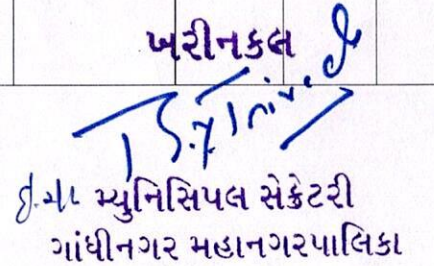 ખરીનકલ
ઈ.ચા મ્યુનિસિપલ સેક્રેટરી
ગાંધીનગર મહાનગરપાલિકા